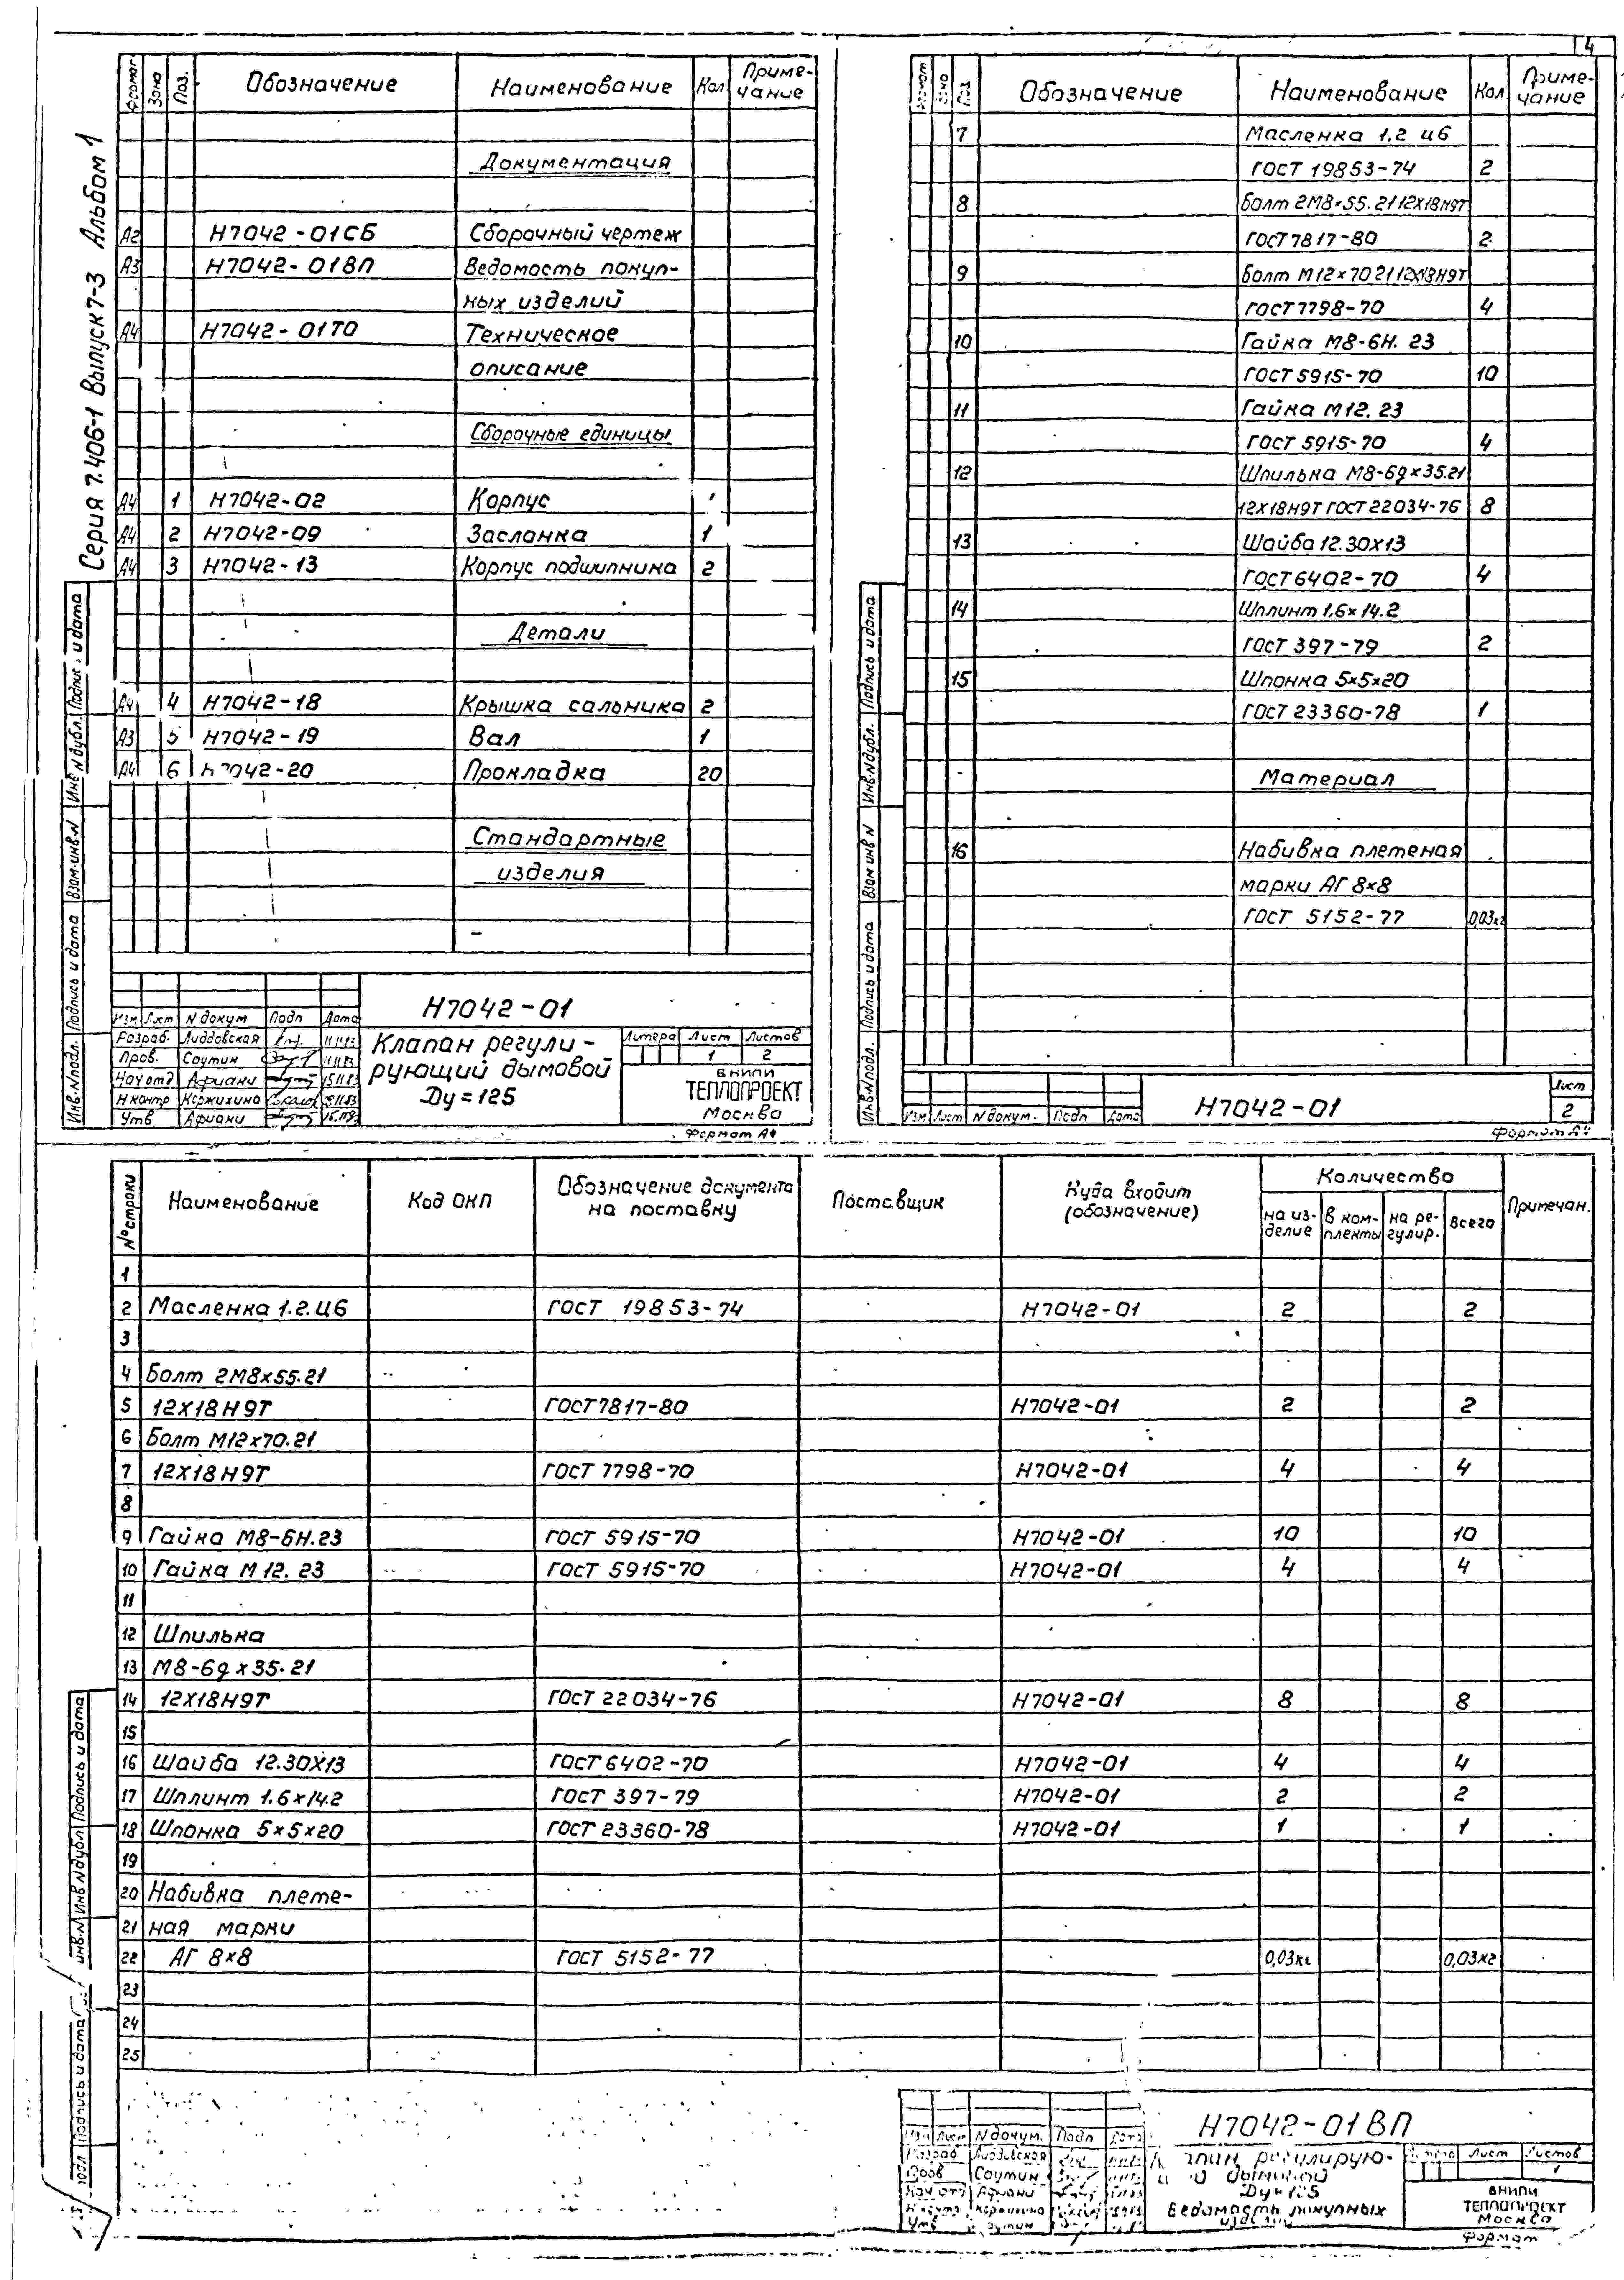 4
Серия 7.406-1 Выпуск 7-3 Альбом 1
Формат Зона Поз. Обозначение Наименование Кол. Приме-
чание
Документация
А2 Н7042-01СБ Сборочный чертеж
А3 Н7042-01ВП Ведомость покуп-
ных изделий
А4 Н7042-01ТО Техническое
описание
Сборочные единицы
А4 1 Н7042-02 Корпус
А4 2 Н7042-09 Заслонка 1
А4 3 Н7042-13 Корпус подшипника 2
Детали
А4 4 Н7042-18 Крышка сальника 2
А3 5 Н7042-19 Вал 1
А4 6 Н7042-20 Прокладка 20
Стандартные
изделия
Инв.N подл. Подпись и дата Взам.инв.N Инв N дубл. Подпис. и дата
Н7042-01
Изм Лист N докум Подп Дата
Разраб. Лиддовская 11.11.83
Пров. Саутин 11.11.83
Нач отд Афиани 15.11.83
Н контр Коржихина
Утв Афиани
Клапан регули-
рующий дымовой
Ду=125
Литера Лист Листов
1 2
ВНИПИ
ТЕПЛОПРОЕКТ
Москва
Формат А4
Поз. Обозначение Наименование Кол Приме-
чание
7 Масленка 1.2 ц6
ГОСТ 19853-74 2
8 болт 2М8×55.21 12Х18Н9Т
ГОСТ 7817-80 2
9 болт М12×70 21 12Х18Н9Т
ГОСТ 7798-70 4
10 Гайка М8-6Н. 23
ГОСТ 5915-70 10
11 Гайка М12. 23
ГОСТ 5915-70 4
12 Шпилька М8-6g×35.21
12Х18Н9Т ГОСТ 22034-76 8
13 Шайба 12.30Х13
ГОСТ 6402-70 4
14 Шплинт 1.6×14.2
ГОСТ 397-79 2
15 Шпонка 5×5×20
ГОСТ 23360-78 1
Материал
16 Набивка плетеная
марки АГ 8×8
ГОСТ 5152-77 0,03кг
Инв.N подл. Подпись и дата Взам инв N Инв.N дубл. Подпись и дата
Изм Лист N докум. Подп Дата
Н7042-01
Лист
2
Формат А4
№ строки Наименование Код ОКП Обозначение документа
на поставку Поставщик Куда входит
(обозначение) Количество Примечан.
на из-
делие в ком-
плекты на ре-
гулир. Всего
1
2 Масленка 1.2.ц6 ГОСТ 19853-74 Н7042-01 2 2
3
4 Болт 2М8×55.21
5 12Х18Н9Т ГОСТ 7817-80 Н7042-01 2 2
6 Болт М12×70.21
7 12Х18Н9Т ГОСТ 7798-70 Н7042-01 4 4
8
9 Гайка М8-6Н.23 ГОСТ 5915-70 Н7042-01 10 10
10 Гайка М 12. 23 ГОСТ 5915-70 Н7042-01 4 4
11
12 Шпилька
13 М8-6g×35.21
14 12Х18Н9Т ГОСТ 22034-76 Н7042-01 8 8
15
16 Шайба 12.30Х13 ГОСТ 6402-70 Н7042-01 4 4
17 Шплинт 1.6×14.2 ГОСТ 397-79 Н7042-01 2 2
18 Шпонка 5×5×20 ГОСТ 23360-78 Н7042-01 1 1
19
20 Набивка плете-
21 ная марки
22 АГ 8×8 ГОСТ 5152-77 0,03кг 0,03кг
23
24
25
подл Подпись и дата инв.N Инв N дубл Подпись и дата
Н7042-01ВП
Изм Лист N докум. Подп Дата
Разраб Лиддовская
Пров Саутин
Нач отд Афиани
Н контр Коржихина
Утв
регулирую-
дымовой
Ду=125
Ведомость покупных
изделий
Лист Листов
1
ВНИПИ
ТЕПЛОПРОЕКТ
Москва
Формат